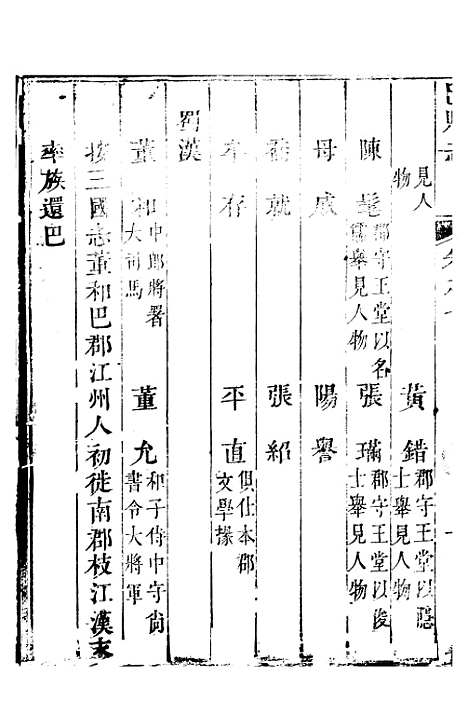 見人物
黃錯 郡守王堂以隱士舉見人物
陳髦 郡守王堂以名儒舉見人物
張璊 郡守王堂以俊士舉見人物
毋成
陽譽
喬就
張紹
牟存
平直 俱仕本郡文學掾
蜀漢
董和 中郎將署大司馬
董允 和子侍中守尚書令大將軍
按三國志董和巴郡江州人初徙南郡枝江漢末
率族還巴